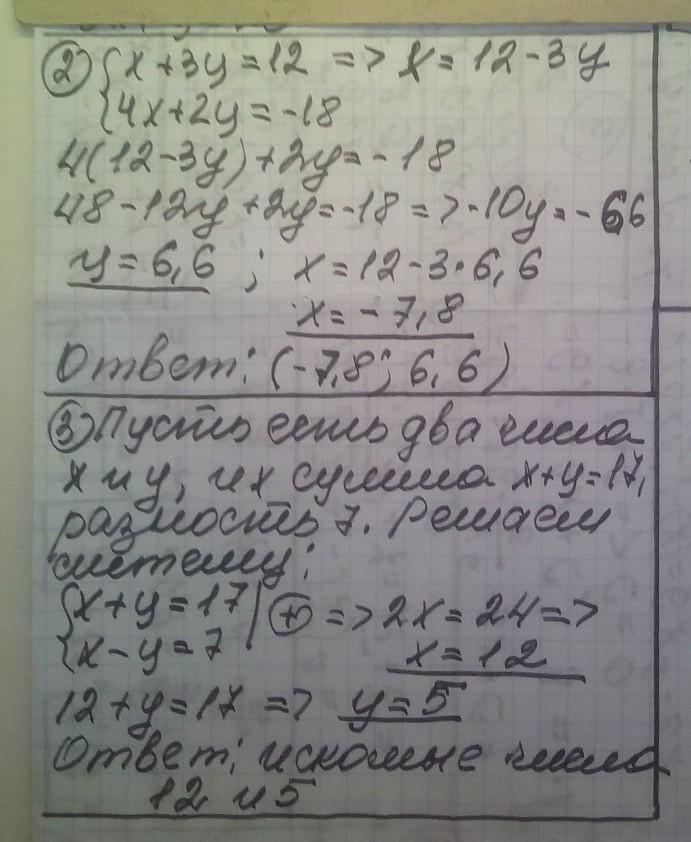 ② { x + 3y = 12 => x = 12 - 3y
4x + 2y = -18
4(12 - 3y) + 2y = -18
48 - 12y + 2y = -18 => -10y = -66
y = 6,6 ; x = 12 - 3·6,6
x = -7,8
Ответ: (-7,8; 6,6)
③ Пусть есть два числа
x и y, их сумма x+y=17,
разность 7. Решаем
систему:
{ x + y = 17 | ⊕ => 2x = 24 =>
x - y = 7
x = 12
12 + y = 17 => y = 5
Ответ: искомые числа
12 и 5